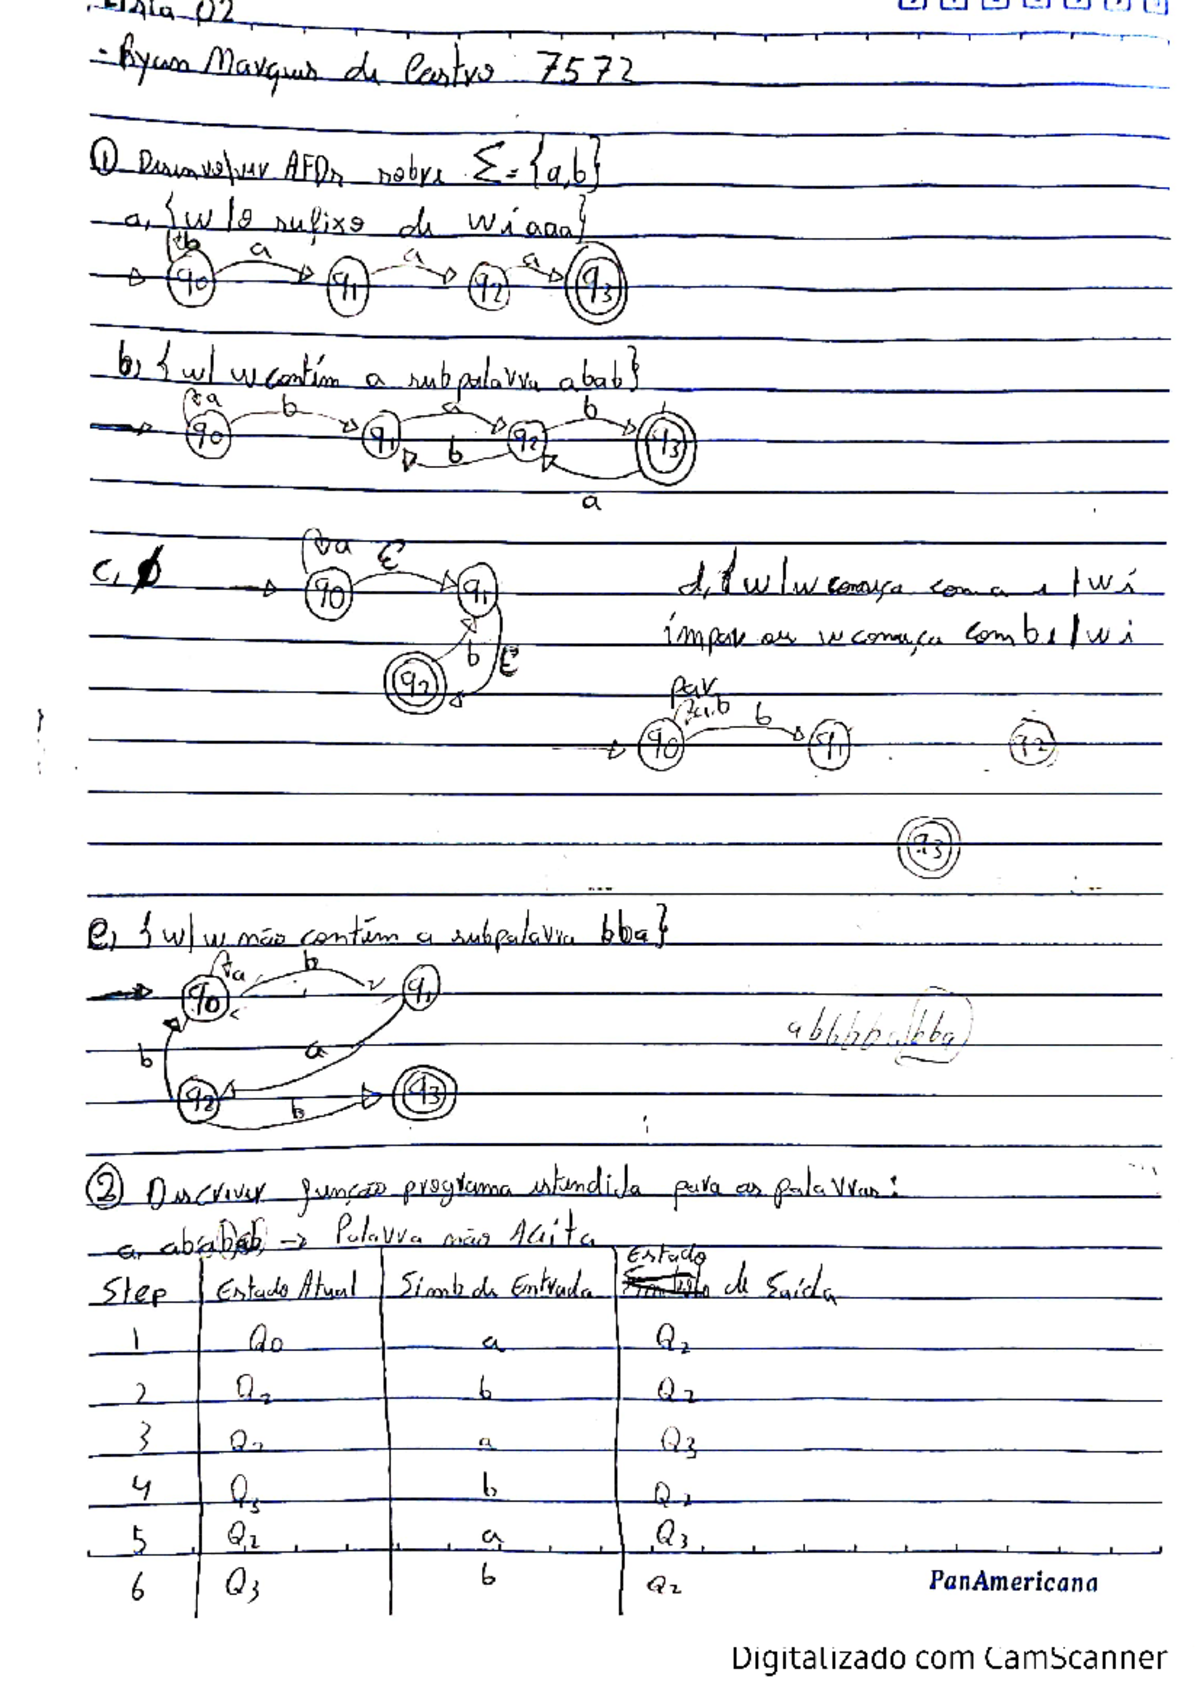 Lista 02
- Ryan Marques de Castro 7572
① Desenvolver AFDs sobre Σ = {a,b}
a, {w/o sufixo de w é aaa}
b a a a
q0 q1 q2 q3
b, {w/ w contém a subpalavra abab}
a b a b
q0 q1 q2 q3
b
a
c, ∅
a ε
q0 q1
b ε
q2
d, {w/w começa com a e |w| é
ímpar ou w começa com b e |w| é
par
a,b b
q0 q1 q2
q3
e, {w/w não contém a subpalavra bba}
a b
q0 q1
b a
q2 b q3
② Descrever função programa estendida para as palavras:
a, ababab → Palavra não Aceita
Step Estado Atual Simb de Entrada Estado de Saída
1 Q0 a Q2
2 Q2 b Q2
3 Q2 a Q3
4 Q3 b Q2
5 Q2 a Q3
6 Q3 b Q2
PanAmericana
Digitalizado com CamScanner